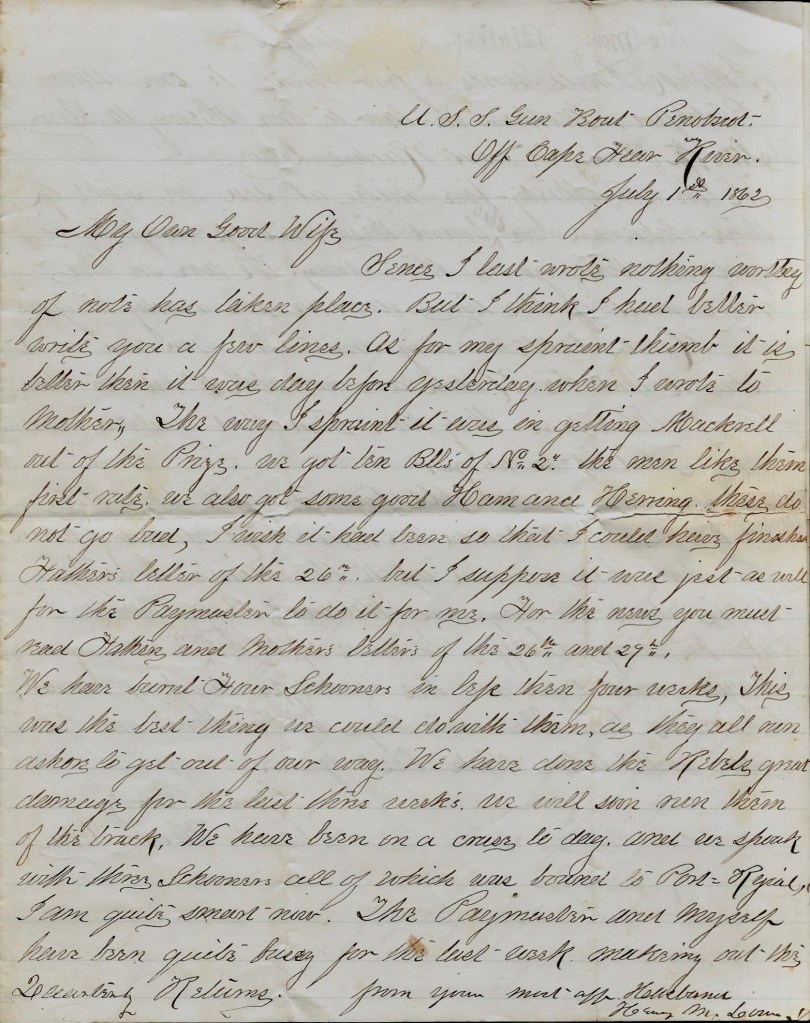 U. S. S. Gun Bout Penobscot
Off Cape Fear River.
July 1st 1862
My Own Good Wife
Sence I last wrote nothing worthy
of note has taken place. But I think I had better
write you a few lines. As for my spraint thumb it is
better then it was day before yesterday when I wrote to
Mother, The way I spraint it was in getting Mackrell
out of the Prize. we got ten Blls of No. 2. the men like them
first rate. we also got some good Ham and Herring. these do
not go bad, I wish it had been so that I could have finished
Father's letter of the 26th. but I suppose it was jest as well
for the Paymaster to do it for me. For the news you must
read Father and Mothers letters of the 26th and 29th.
We have burnt Four Schooners in less then four weeks, This
was the best thing we could do with them, as they all run
ashore to get out of our way. We have done the Rebels great
damage for the last three weeks. we will soon run them
of the track. We have been on a cruse to day. and we speak
with three Schooners all of which was bound to Port-Royial,
I am quite smart now. The Paymaster and Myself
have been quite busey for the last week makeing out the
Quarterly Returns. from your most aff Husband
Henry M.